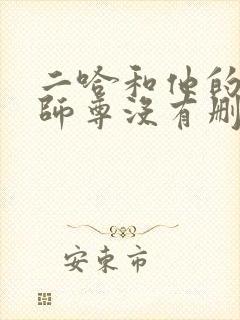 二哈和他的
师尊没有删
安东市